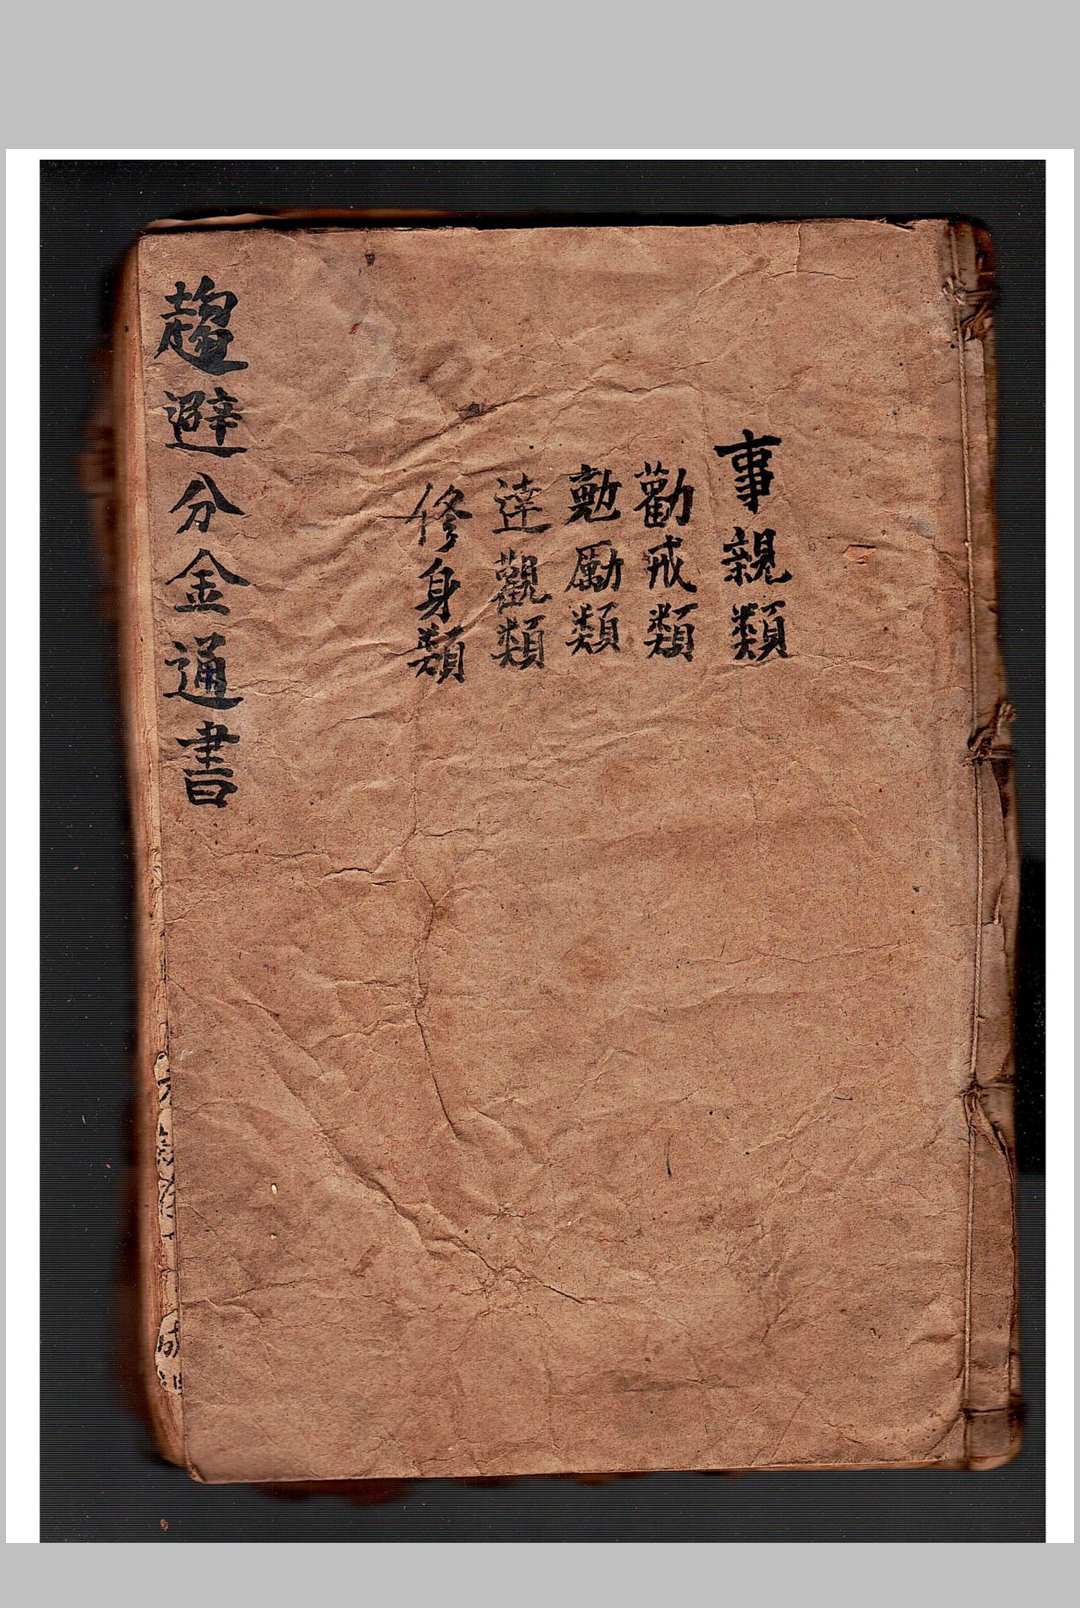 事親類
勸戒類
勉勵類
達觀類
修身類
趨避分金通書